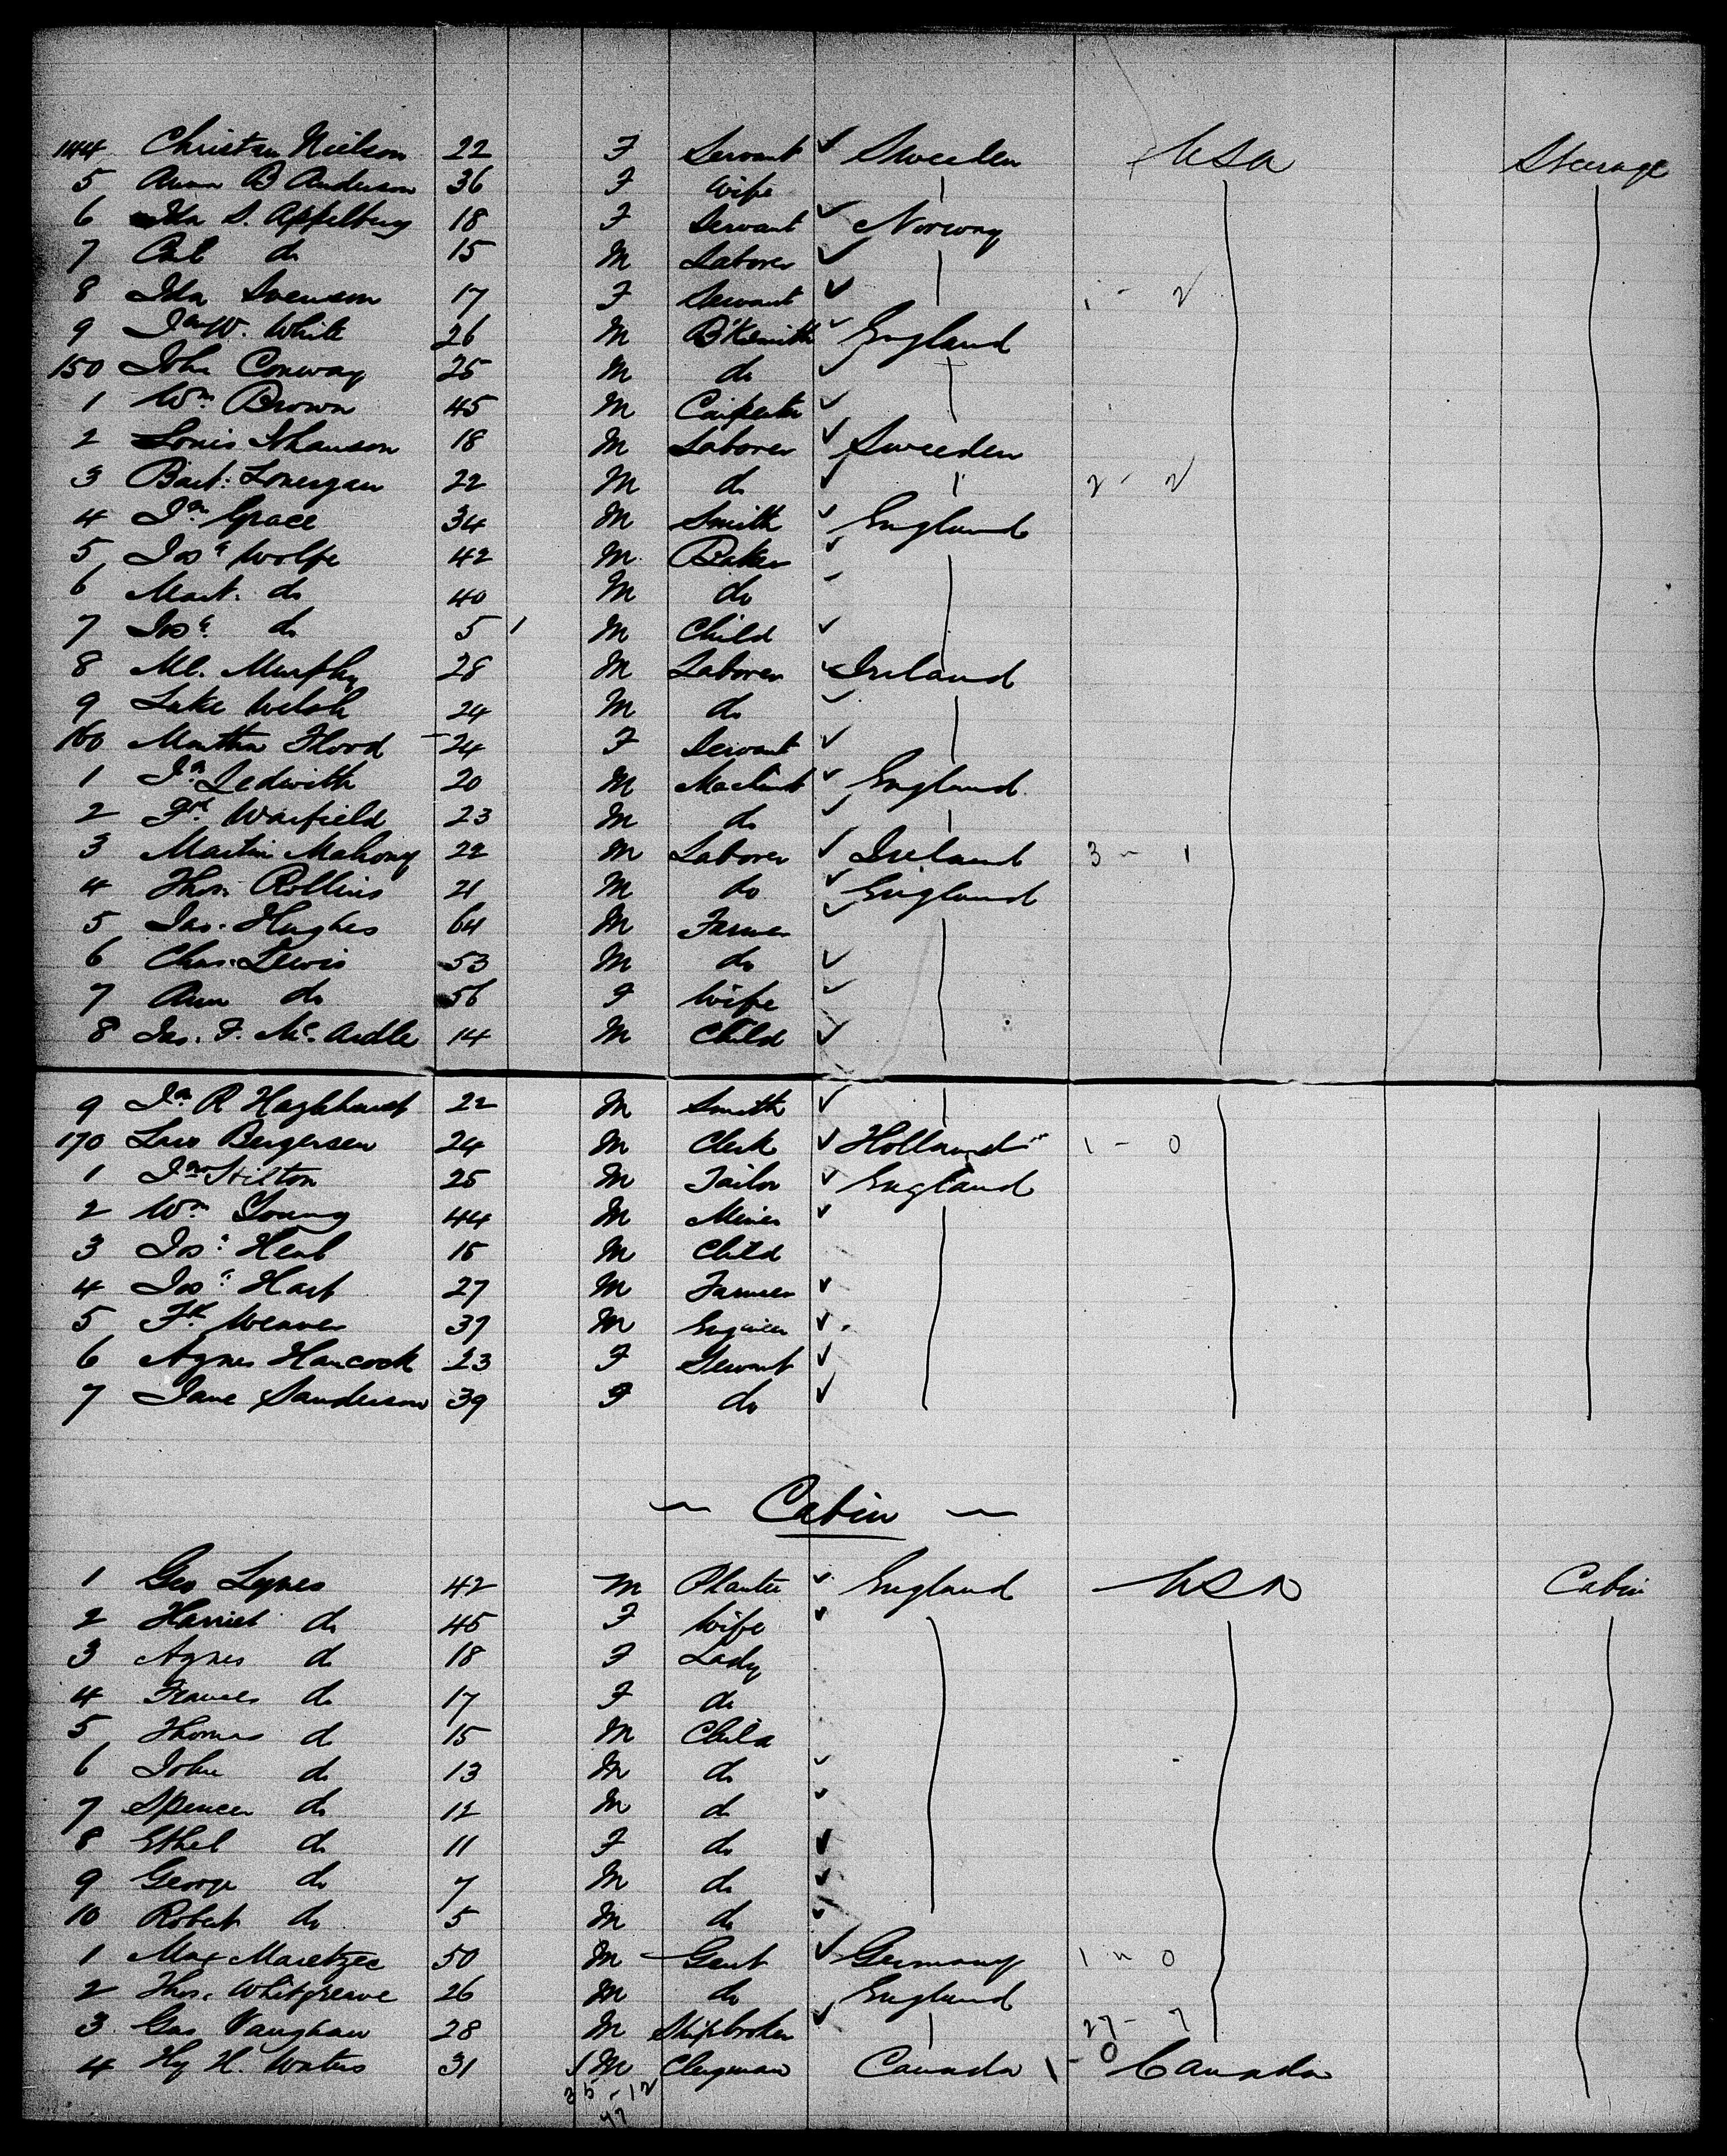 144 Christan Nielson 22 F Servant ✓ Sweeden USA Steerage
5 Anna B Anderson 36 F Wife
6 Ida S. Appelburg 18 F Servant ✓ Norway
7 do 15 M Laborer ✓
8 Ida Svenson 17 F Servant ✓ 1 - 2
9 Jno W. White 26 M B'Ksmith ✓ England
150 John Conway 25 M do ✓
1 Wm Brown 45 M Carpenter ✓
2 Louis Johanson 18 M Laborer ✓ Sweeden
3 Bart: Lonergan 22 M do ✓ 2 - 2
4 Jno Grace 34 M Smith ✓ England
5 Jos: Wolfe 42 M Baker ✓
6 Mart. do 40 M do
7 Jos: do 5 M Child ✓
8 Ml. Murphy 28 M Laborer ✓ Ireland
9 Luke Welsh 24 M do ✓
160 Martha Flood 24 F Servant ✓
1 Jn Ledwith 20 M Machinist ✓ England
2 Fk Warfield 23 M do ✓
3 Martin Mahony 22 M Laborer ✓ Ireland 3 - 1
4 Thos Rollins 21 M do ✓ England
5 Jas. Hughes 64 M Farmer ✓
6 Chas. Lewis 53 M do ✓
7 Ann do 56 F Wife ✓
8 Jas. F. Mc Ardle 14 M Child ✓
9 Jn R 22 M Smith ✓
170 Lars Bergersen 24 M Clerk ✓ Holland 1 - 0
1 Jno Hilton 25 M Tailor ✓ England
2 Wm Young 44 M Miner ✓
3 Jos: 15 M Child
4 Jos: Hart 27 M Farmer ✓
5 Fk Weaver 37 M Engineer ✓
6 Agnes Hancock 23 F Servant ✓
7 Jane Sanderson 39 F do ✓
~ Cabin ~
1 Geo Lynes 42 M Planter ✓ England USA Cabin
2 Harriet do 45 F Wife ✓
3 Agnes do 18 F Lady
4 Frances do 17 F do
5 Thomas do 15 M Child
6 John do 13 M do ✓
7 Spencer do 12 M do ✓
8 Ethel do 11 F do ✓
9 George do 7 M do ✓
10 Robert do 5 M do ✓
1 Max Maretzec 50 M Gent ✓ Germany 1 - 0
2 Thos. Whitgreave 26 M do England
3 Vaughan 28 M Shipbroker ✓ 27 - 7
4 Hy H. Waters 31 M Clergman Canada 1 - 0 Canada
35 - 12
47